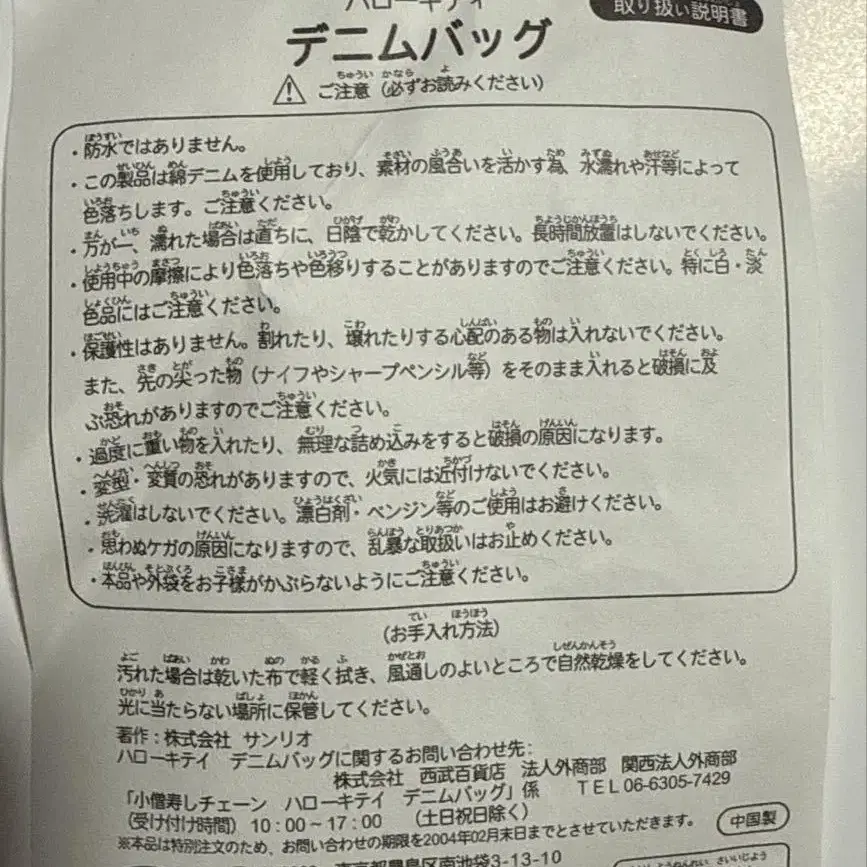 ハローキティ
取り扱い説明書
デニムバッグ
⚠ ご注意（必ずお読みください）
・防水ではありません。
・この製品は綿デニムを使用しており、素材の風合いを活かす為、水濡れや汗等によって
色落ちします。ご注意ください。
・万が一、濡れた場合は直ちに、日陰で乾かしてください。長時間放置はしないでください。
・使用中の摩擦により色落ちや色移りすることがありますのでご注意ください。特に白・淡
色品にはご注意ください。
・保護性はありません。割れたり、壊れたりする心配のある物は入れないでください。
また、先の尖った物（ナイフやシャープペンシル等）をそのまま入れると破損に及
ぶ恐れがありますのでご注意ください。
・過度に重い物を入れたり、無理な詰め込みをすると破損の原因になります。
・変型・変質の恐れがありますので、火気には近付けないでください。
・洗濯はしないでください。漂白剤・ベンジン等のご使用はお避けください。
・思わぬケガの原因になりますので、乱暴な取扱いはお止めください。
・本品や外袋をお子様がかぶらないようにご注意ください。
（お手入れ方法）
汚れた場合は乾いた布で軽く拭き、風通しのよいところで自然乾燥をしてください。
光に当たらない場所に保管してください。
著作：株式会社 サンリオ
ハローキテイ デニムバッグに関するお問い合わせ先：
株式会社 西武百貨店 法人外商部 関西法人外商部
「小僧寿しチェーン ハローキテイ デニムバッグ」係 TEL 06-6305-7429
（受け付け時間）10：00～17：00 （土日祝日除く）
※本品は特別注文のため、お問い合わせの期限を2004年02月末日までとさせていただきます。
中国製
東京都豊島区南池袋3-13-10